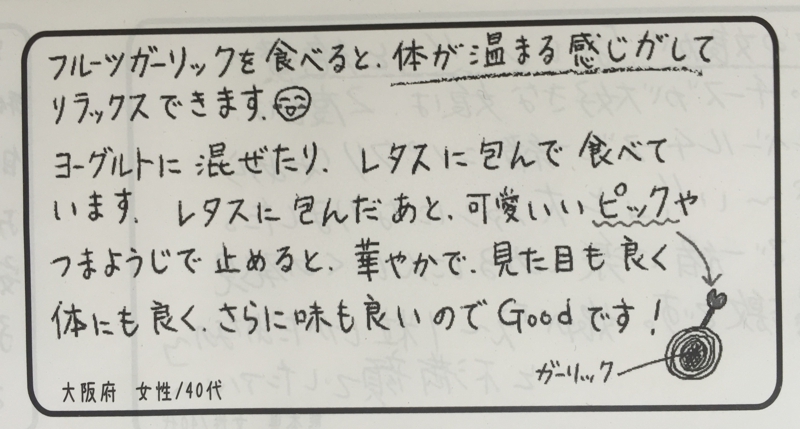 フルーツガーリックを食べると、体が温まる感じがして
リラックスできます。
ヨーグルトに混ぜたり、レタスに包んで食べて
います。レタスに包んだあと、可愛いいピックや
つまようじで止めると、華やかで、見た目も良く
体にも良く、さらに味も良いのでGoodです！
ガーリック
大阪府 女性/40代